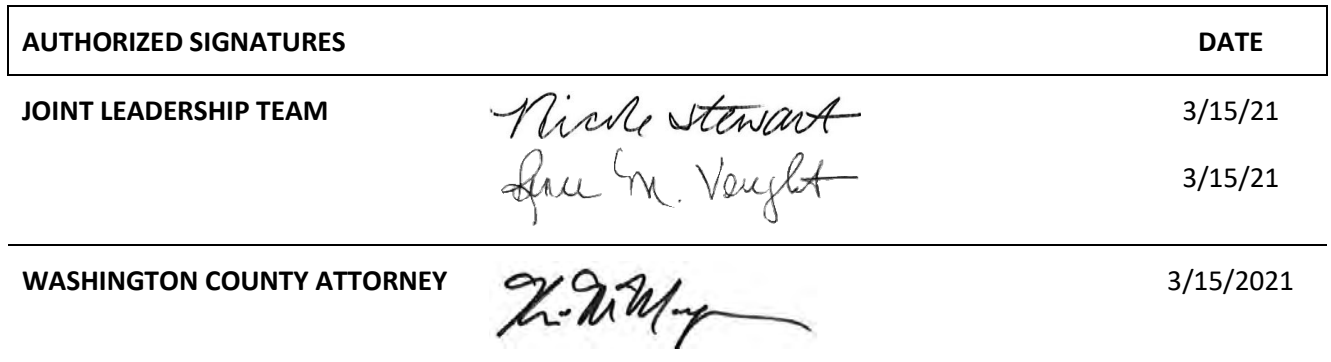 AUTHORIZED SIGNATURES DATE
JOINT LEADERSHIP TEAM Nicole Stewart 3/15/21
M. Vaught 3/15/21
WASHINGTON COUNTY ATTORNEY 3/15/2021